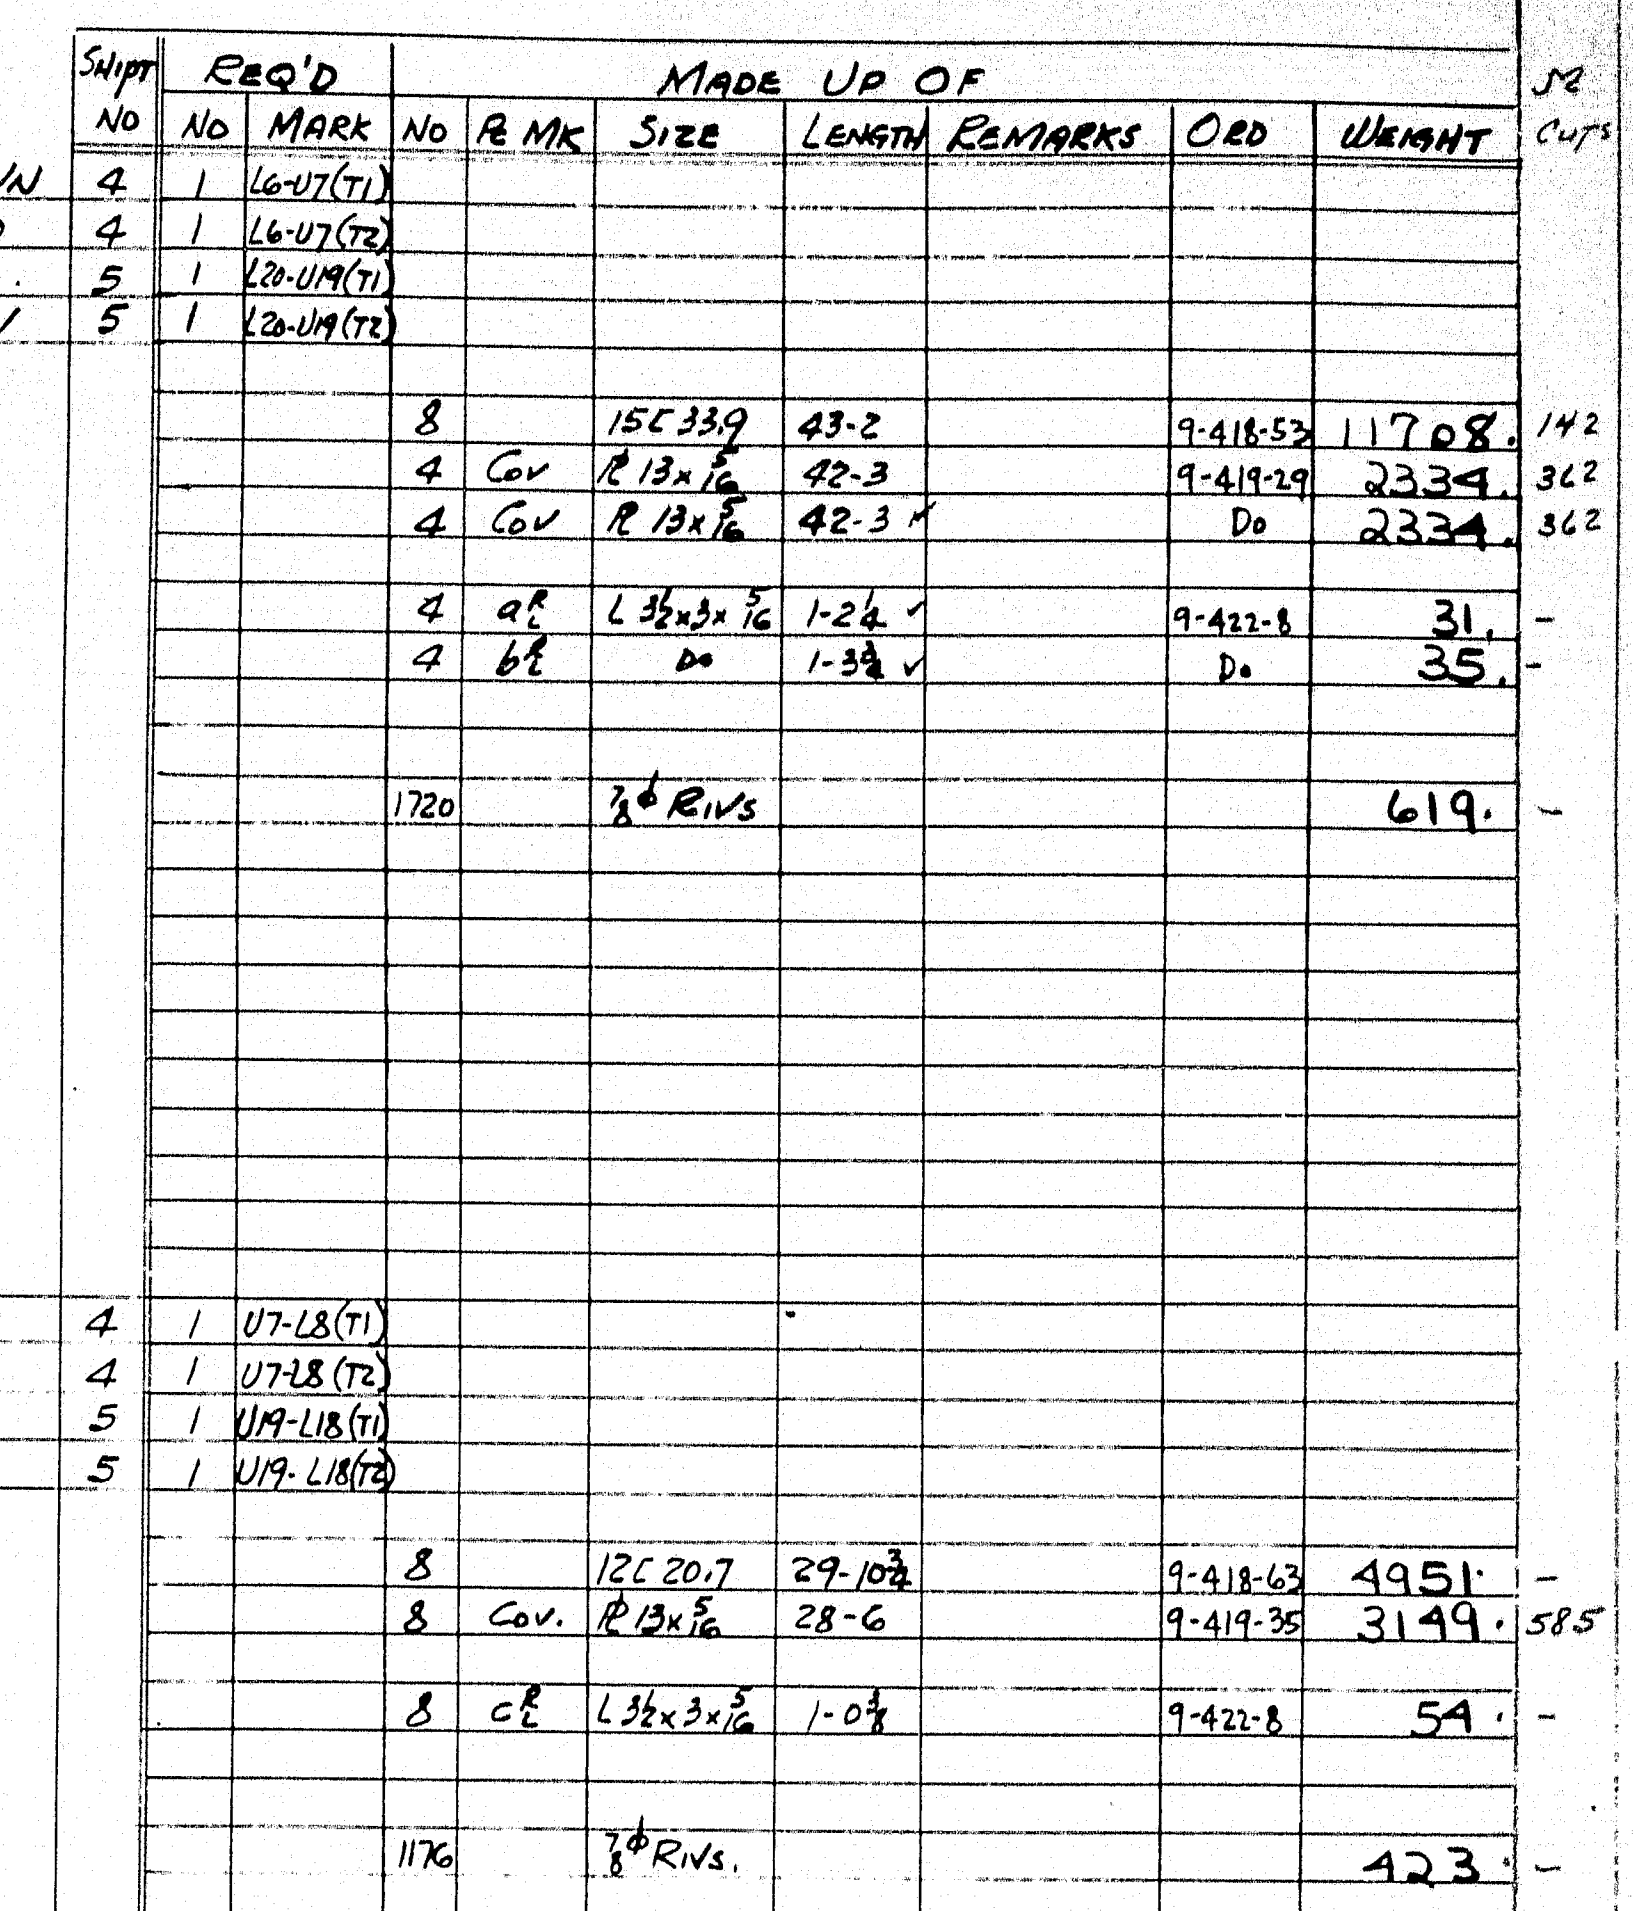 SHIPT REQ'D MADE UP OF
NO NO MARK NO PC MK SIZE LENGTH REMARKS ORD WEIGHT CUTS
4 1 L6-U7(T1)
4 1 L6-U7(T2)
5 1 L20-U19(T1)
5 1 L20-U19(T2)
8 15[ 33.9 43-2 9-418-53 11708. 142
4 Cov PL 13 x 5/16 42-3 9-419-29 2334. 362
4 Cov PL 13 x 5/16 42-3 ✓ Do 2334. 362
4 a R L L 3 1/2 x 3 x 5/16 1-2 1/4 ✓ 9-422-8 31. -
4 b R L Do 1-3 3/4 ✓ Do 35. -
1720 7/8 ϕ RIVS 619. -
4 1 U7-L8(T1)
4 1 U7-L8(T2)
5 1 U19-L18(T1)
5 1 U19-L18(T2)
8 12[ 20.7 29-10 3/4 9-418-63 4951. -
8 Cov. PL 13 x 5/16 28-6 9-419-35 3149. 585
8 c R L L 3 1/2 x 3 x 5/16 1-0 3/8 9-422-8 54. -
1176 7/8 ϕ RIVS. 423. -